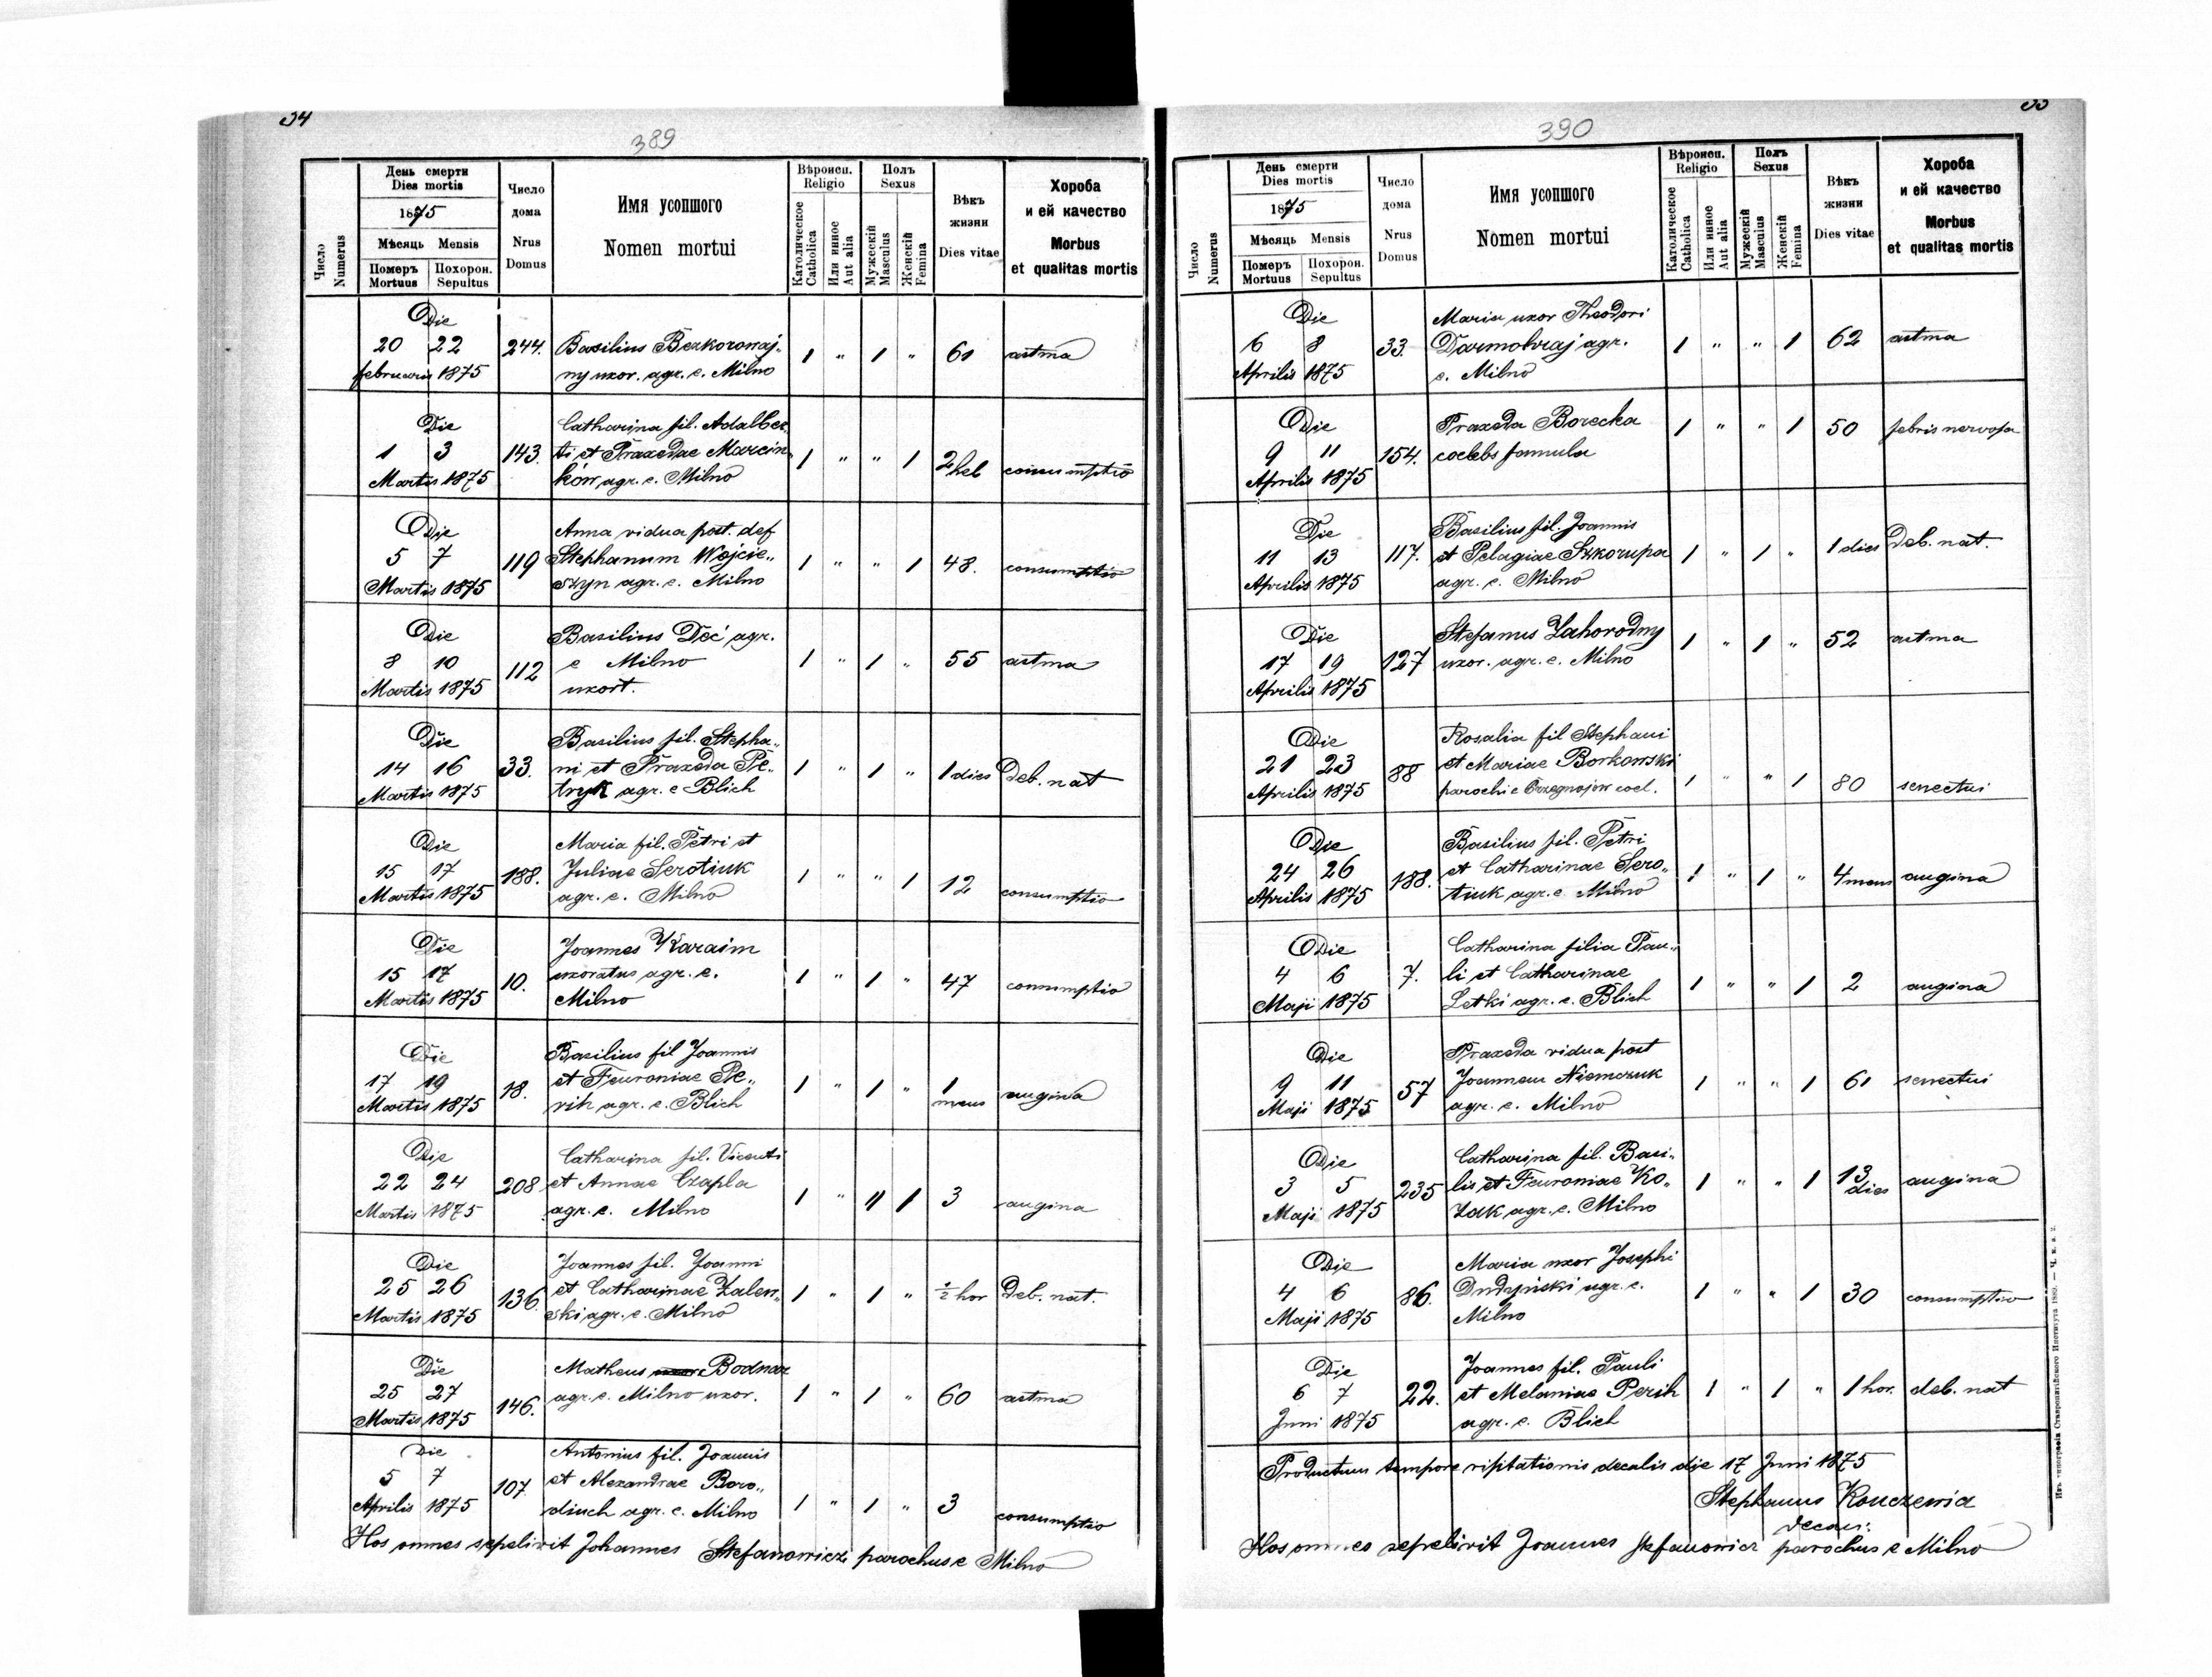 34
389
День смерти
Dies mortis
1875
Мѣсяць Mensis
Померъ Похорон.
Mortuus Sepultus
Число
Numerus
Число
дома
Nrus
Domus
Имя усопшого
Nomen mortui
Вѣроисп.
Religio
Католическое
Catholica
Или инное
Aut alia
Полъ
Sexus
Мужескій
Masculus
Женскій
Femina
Вѣкъ
жизни
Dies vitae
Хороба
и ей качество
Morbus
et qualitas mortis
Die
20 22 244. Basilius Bezkorowaj„ 1 " 1 " 61 astma
februarii 1875 ny uxor. agr. e. Milno
Die Catharina fil. Adalber„
1 3 143. ti et Praxedae Marcin„ 1 " " 1 2 heb consumptio
Martis 1875 ków agr. e. Milno
Die Anna vidua post. def
5 7 119 Stephanum Wojcie„ 1 " " 1 48. consumptio
Martis 1875 szyn agr. e. Milno
Die Basilius Deć agr.
8 10 112 e Milno 1 " 1 " 55 astma
Martis 1875 uxort.
Die Basilius fil. Stepha„
14 16 33. ni et Praxeda Pe„ 1 " 1 " 1 dies Deb. nat
Martis 1875 tryk agr. e Blich
Die Maria fil. Petri et
15 17 188. Juliae Serotiuk 1 " " 1 12 consumptio
Martis 1875 agr. e. Milno
Die Joannes Karaim
15 17 10. uxoratus agr. e. 1 " 1 " 47 consumptio
Martis 1875 Milno
Die Basilius fil Joannis
17 19 18. et Feuroniae Pe„ 1 " 1 " 1 mens angina
Martis 1875 rih agr. e. Blich
Die Catharina fil. Vicenti
22 24 208 et Annae Czapla 1 " " 1 3 angina
Martis 1875 agr. e. Milno
Die Joannes fil. Joanni
25 26 136. et Catharinae Zalew„ 1 " 1 " ½ hor Deb. nat.
Martis 1875 ski agr. e. Milno
Die Matheus Bodnar
25 27 146. agr. e. Milno uxor. 1 " 1 " 60 astma
Martis 1875
Die Antonius fil. Joannis
5 7 107. et Alexandrae Boro„ 1 " 1 " 3 consumptio
Aprilis 1875 diuch agr. e. Milno
Hos omnes sepelivit Johannes Stefanowicz parochus e Milno
35
390
День смерти
Dies mortis
1875
Мѣсяць Mensis
Померъ Похорон.
Mortuus Sepultus
Число
Numerus
Число
дома
Nrus
Domus
Имя усопшого
Nomen mortui
Вѣроисп.
Religio
Католическое
Catholica
Или инное
Aut alia
Полъ
Sexus
Мужескій
Masculus
Женскій
Femina
Вѣкъ
жизни
Dies vitae
Хороба
и ей качество
Morbus
et qualitas mortis
Die Maria uxor Theodori
6 8 33. Darmohraj agr. 1 " " 1 62 astma
Aprilis 1875 e. Milno
Die Praxeda Borecka
9 11 154. coelebs famula 1 " " 1 50 febris nervosa
Aprilis 1875
Die Basilius fil. Joannis
11 13 117. et Pelagiae Szkorupa 1 " 1 " 1 dies Deb. nat.
Aprilis 1875 agr. e. Milno
Die Stefanus Zahorodny
17 19 127 uxor. agr. e. Milno 1 " 1 " 52 astma
Aprilis 1875
Die Rosalia fil Stephani
21 23 88 et Mariae Borkowski 1 " " 1 80 senectus
Aprilis 1875 parochi e coel.
Die Basilius fil. Petri
24 26 188. et Catharinae Sero„ 1 " 1 " 4 mens angina
Aprilis 1875 tiuk agr. e Milno
Die Catharina filia Pau„
4 6 7. li et Catharinae 1 " " 1 2 angina
Maji 1875 Letki agr. e. Blich
Die Praxeda vidua post
9 11 57 Joannem Niemczuk 1 " " 1 61 senectus
Maji 1875 agr. e. Milno
Die Catharina fil. Basi„
3 5 235 lis et Feuroniae Ko„ 1 " " 1 13 dies angina
Maji 1875 zak agr. e. Milno
Die Maria uxor Josephi
4 6 86. Dudyński agr. e. 1 " " 1 30 consumptio
Maji 1875 Milno
Die Joannes fil. Pauli
6 7 22. et Melaniae Perih 1 " 1 " 1 hor. deb. nat
Juni 1875 agr. e. Blich
Productum tempore visitationis decalis die 17 Juni 1875
Stephanus Konczewia
decan:
Hos omnes sepelivit Joannes Stefanowicz parochus e Milno
Изъ типографіи Ставропигійского Института 1869. — Ч. к. з. 2.